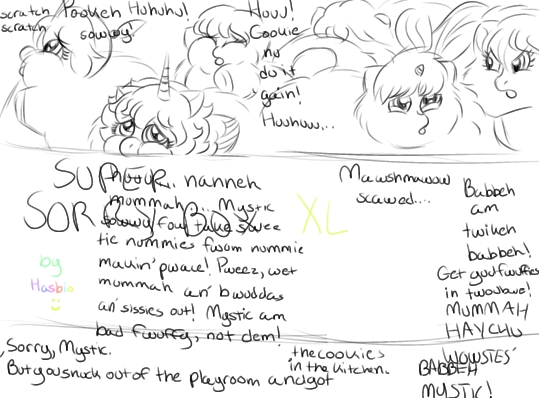 scratch
scratch
Pookeh Huhuhu!
sowwy!
Huuu!
Cookie
nu
du it
gain!
Huuhuu...
SUPER
SORRY BOX XL
by
Hasbio
Huuu.. nanneh
mummah... Mystic
sowwy fow take swee
tic nummies fwom nummie
makin' pwace! Pweez, wet
mummah an' bwuddas
an' sissies out! Mystic am
bad fwuffy, not dem!
Mawshmawow
scawed....
Babbeh
am
twikeh
babbeh!
Get gud fwuffies
in twouwe!
MUMMAH
HAYCHU
WOWSTES'
BABBEH
MYSTIC!
Sorry, Mystic.
But you snuck out of the playroom and got
the cookies
in the kitchen.